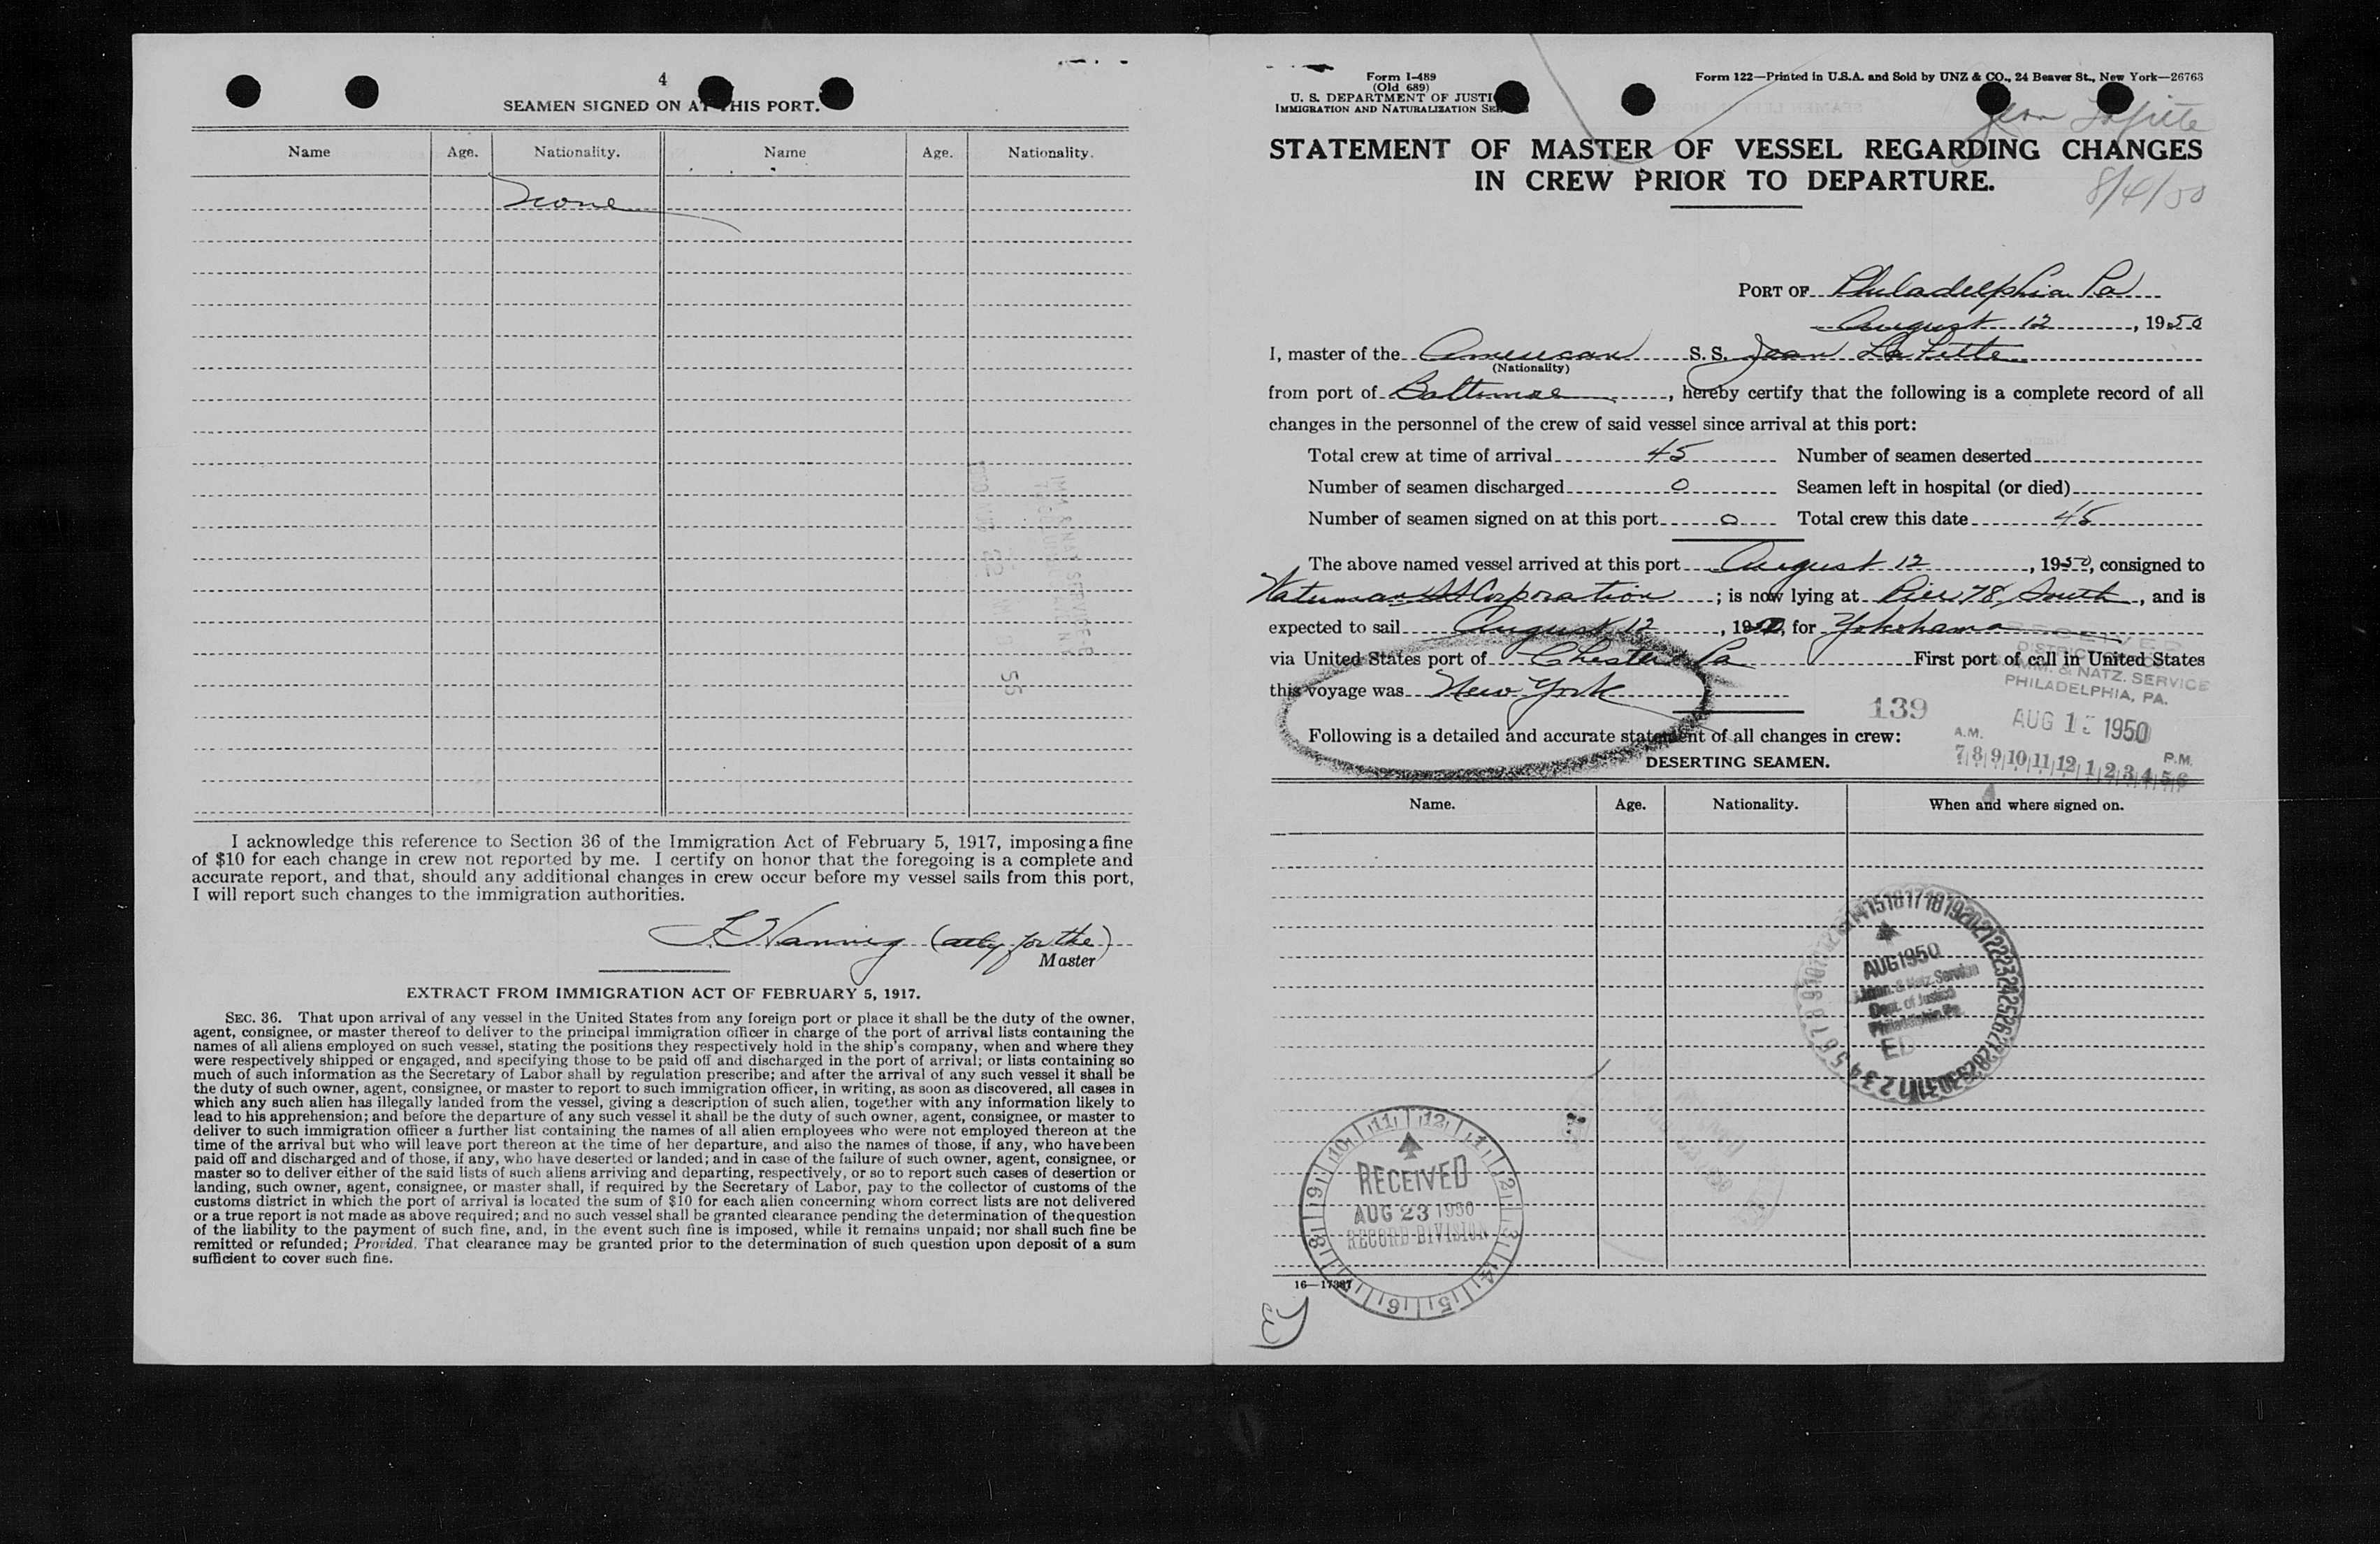 4
SEAMEN SIGNED ON AT THIS PORT.
Name Age. Nationality. Name Age. Nationality.
None
I acknowledge this reference to Section 36 of the Immigration Act of February 5, 1917, imposing a fine
of $10 for each change in crew not reported by me. I certify on honor that the foregoing is a complete and
accurate report, and that, should any additional changes in crew occur before my vessel sails from this port,
I will report such changes to the immigration authorities.
(atty for the)
Master
EXTRACT FROM IMMIGRATION ACT OF FEBRUARY 5, 1917.
SEC. 36. That upon arrival of any vessel in the United States from any foreign port or place it shall be the duty of the owner,
agent, consignee, or master thereof to deliver to the principal immigration officer in charge of the port of arrival lists containing the
names of all aliens employed on such vessel, stating the positions they respectively hold in the ship's company, when and where they
were respectively shipped or engaged, and specifying those to be paid off and discharged in the port of arrival; or lists containing so
much of such information as the Secretary of Labor shall by regulation prescribe; and after the arrival of any such vessel it shall be
the duty of such owner, agent, consignee, or master to report to such immigration officer, in writing, as soon as discovered, all cases in
which any such alien has illegally landed from the vessel, giving a description of such alien, together with any information likely to
lead to his apprehension; and before the departure of any such vessel it shall be the duty of such owner, agent, consignee, or master to
deliver to such immigration officer a further list containing the names of all alien employees who were not employed thereon at the
time of the arrival but who will leave port thereon at the time of her departure, and also the names of those, if any, who have been
paid off and discharged and of those, if any, who have deserted or landed; and in case of the failure of such owner, agent, consignee, or
master so to deliver either of the said lists of such aliens arriving and departing, respectively, or so to report such cases of desertion or
landing, such owner, agent, consignee, or master shall, if required by the Secretary of Labor, pay to the collector of customs of the
customs district in which the port of arrival is located the sum of $10 for each alien concerning whom correct lists are not delivered
or a true report is not made as above required; and no such vessel shall be granted clearance pending the determination of the question
of the liability to the payment of such fine, and, in the event such fine is imposed, while it remains unpaid; nor shall such fine be
remitted or refunded; Provided, That clearance may be granted prior to the determination of such question upon deposit of a sum
sufficient to cover such fine.
Form I-489
(Old 689)
U. S. DEPARTMENT OF JUSTI
IMMIGRATION AND NATURALIZATION SER
Form 122—Printed in U.S.A. and Sold by UNZ & CO., 24 Beaver St., New York—26763
Jean Lafitte
STATEMENT OF MASTER OF VESSEL REGARDING CHANGES
IN CREW PRIOR TO DEPARTURE.
8/4/50
PORT OF Philadelphia Pa
August 12, 1950
I, master of the American S. S. Jean LaFitte
(Nationality)
from port of Baltimore, hereby certify that the following is a complete record of all
changes in the personnel of the crew of said vessel since arrival at this port:
Total crew at time of arrival 45 Number of seamen deserted
Number of seamen discharged 0 Seamen left in hospital (or died)
Number of seamen signed on at this port 0 Total crew this date 45
The above named vessel arrived at this port August 12, 1950, consigned to
Waterman SS Corporation; is now lying at Pier 78 South, and is
expected to sail August 12, 1950, for Yokohama
via United States port of Chester Pa First port of call in United States
this voyage was New York
RECEIVED
DISTRICT
IMM. & NATZ. SERVICE
PHILADELPHIA, PA.
139
AUG 1 1950
A.M. P.M.
7 8 9 10 11 12 1 2 3 4 5 6
Following is a detailed and accurate statement of all changes in crew:
DESERTING SEAMEN.
Name. Age. Nationality. When and where signed on.
AUG 1950
Imm. & Natz. Service
Dept. of Justice
Philadelphia, Pa.
ED
RECEIVED
AUG 23 1950
RECORD DIVISION
16—17387